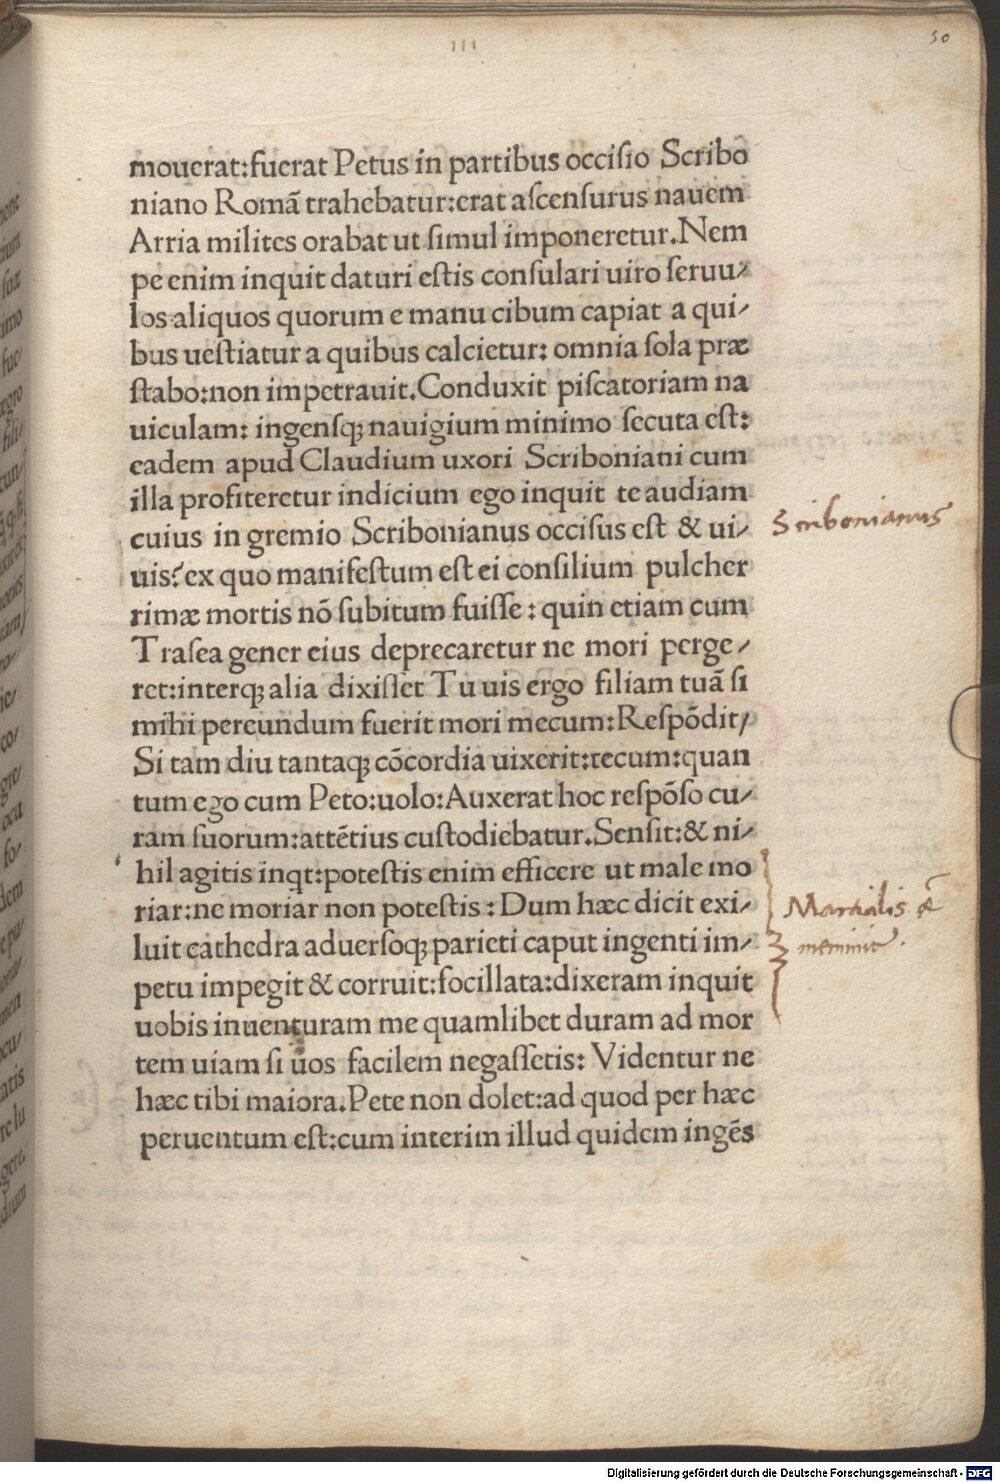 III
50
mouerat:fuerat Petus in partibus occiſio Scribo
niano Romā trahebatur:erat aſcenſurus nauem
Arria milites orabat ut ſimul imponeretur.Nem
pe enim inquit daturi eſtis conſulari uiro ſeruu⸗
los aliquos quorum e manu cibum capiat a qui⸗
bus ueſtiatur a quibus calcietur: omnia ſola præ
ſtabo:non impetrauit.Conduxit piſcatoriam na
uiculam: ingenſqꝫ nauigium minimo ſecuta eſt:
eadem apud Claudium uxori Scriboniani cum
illa profiteretur indicium ego inquit te audiam
cuius in gremio Scribonianus occiſus eſt & ui⸗
uis? ex quo manifeſtum eſt ei conſilium pulcher
rimæ mortis nō ſubitum fuiſſe : quin etiam cum
Traſea gener eius deprecaretur ne mori perge⸗
ret:interqꝫ alia dixiſſet Tu uis ergo filiam tuā ſi
mihi pereundum fuerit mori mecum:Reſpōdit/
Si tam diu tantaqꝫ cōcordia uixerit:tecum:quan
tum ego cum Peto:uolo:Auxerat hoc reſpōſo cu⸗
ram ſuorum:attētius cuſtodiebatur.Senſit:& ni⸗
hil agitis inqt:poteſtis enim efficere ut male mo
riar:ne moriar non poteſtis : Dum hæc dicit exi⸗
luit cathedra aduerſoqꝫ parieti caput ingenti im⸗
petu impegit & corruit:focillata:dixeram inquit
uobis inuenturam me quamlibet duram ad mor
tem uiam ſi uos facilem negaſſetis: Videntur ne
hæc tibi maiora.Pete non dolet:ad quod per hæc
peruentum eſt:cum interim illud quidem ingēs
Scribonianus
Martialis
meminit.
Digitalisierung gefördert durch die Deutsche Forschungsgemeinschaft - DFG